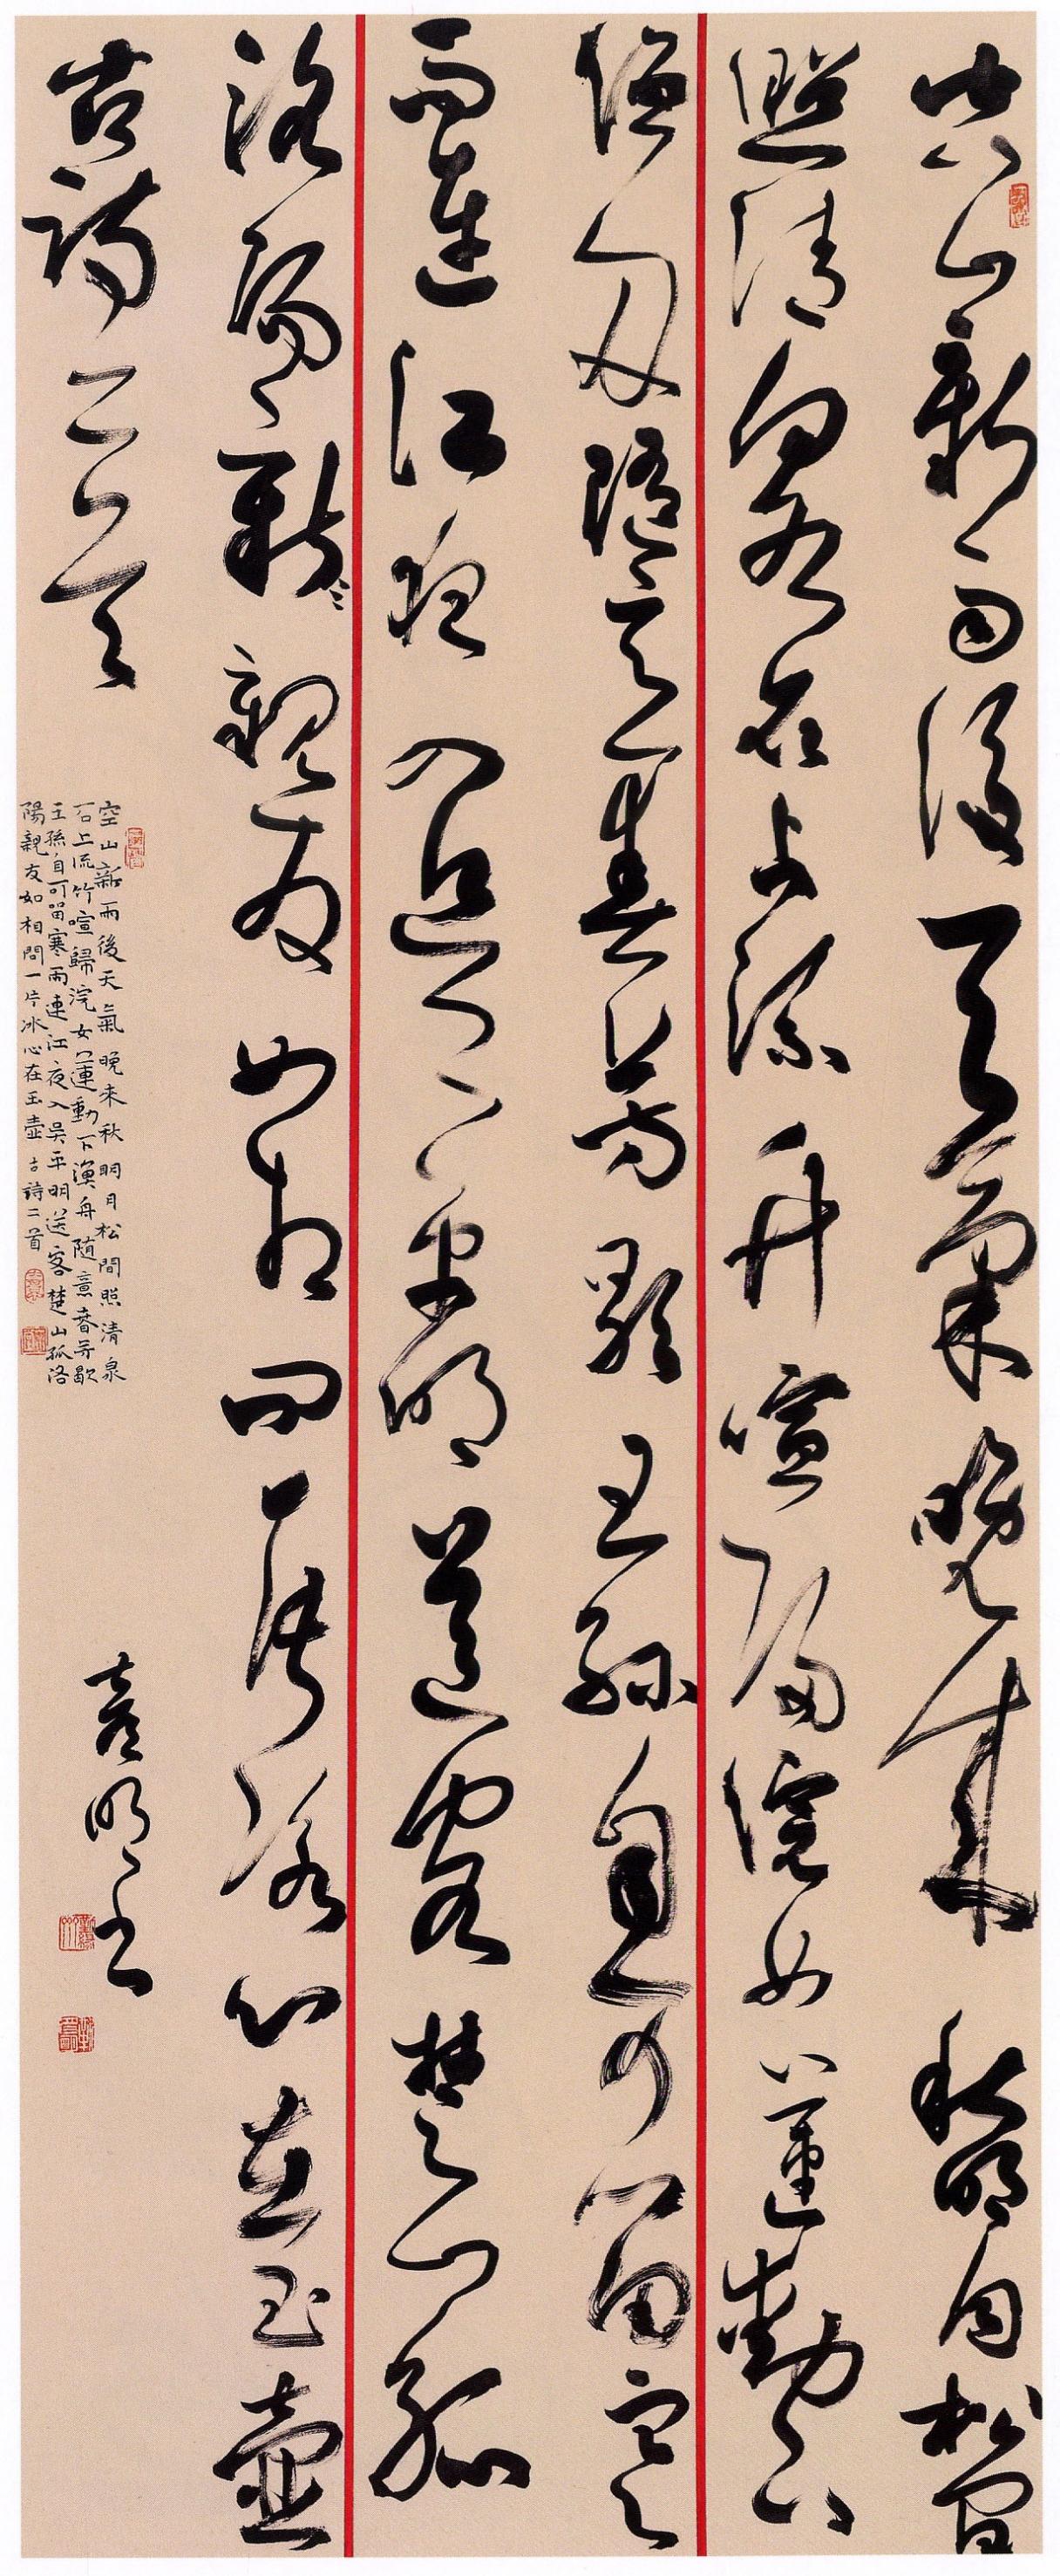 空山新雨後天氣晚來秋明月松間
照清泉石上流竹喧歸浣女蓮動下
漁舟隨意春芳歇王孫自可留寒
雨連江夜入吳平明送客楚山孤
洛陽親友如相問一片冰心在玉壺
古詩二首
空山新雨後天氣晚来秋明月松間照清泉
石上流竹喧歸浣女蓮動下漁舟随意春芳歇
王孫自可留寒雨連江夜入吳平明送客楚山孤洛
陽親友如相問一片冰心在玉壺 古詩二首
喜明书